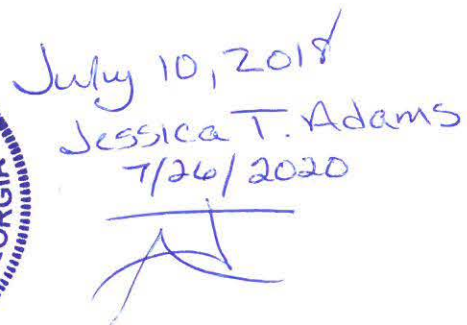 July 10, 2018
Jessica T. Adams
7/26/2020
GEORGIA